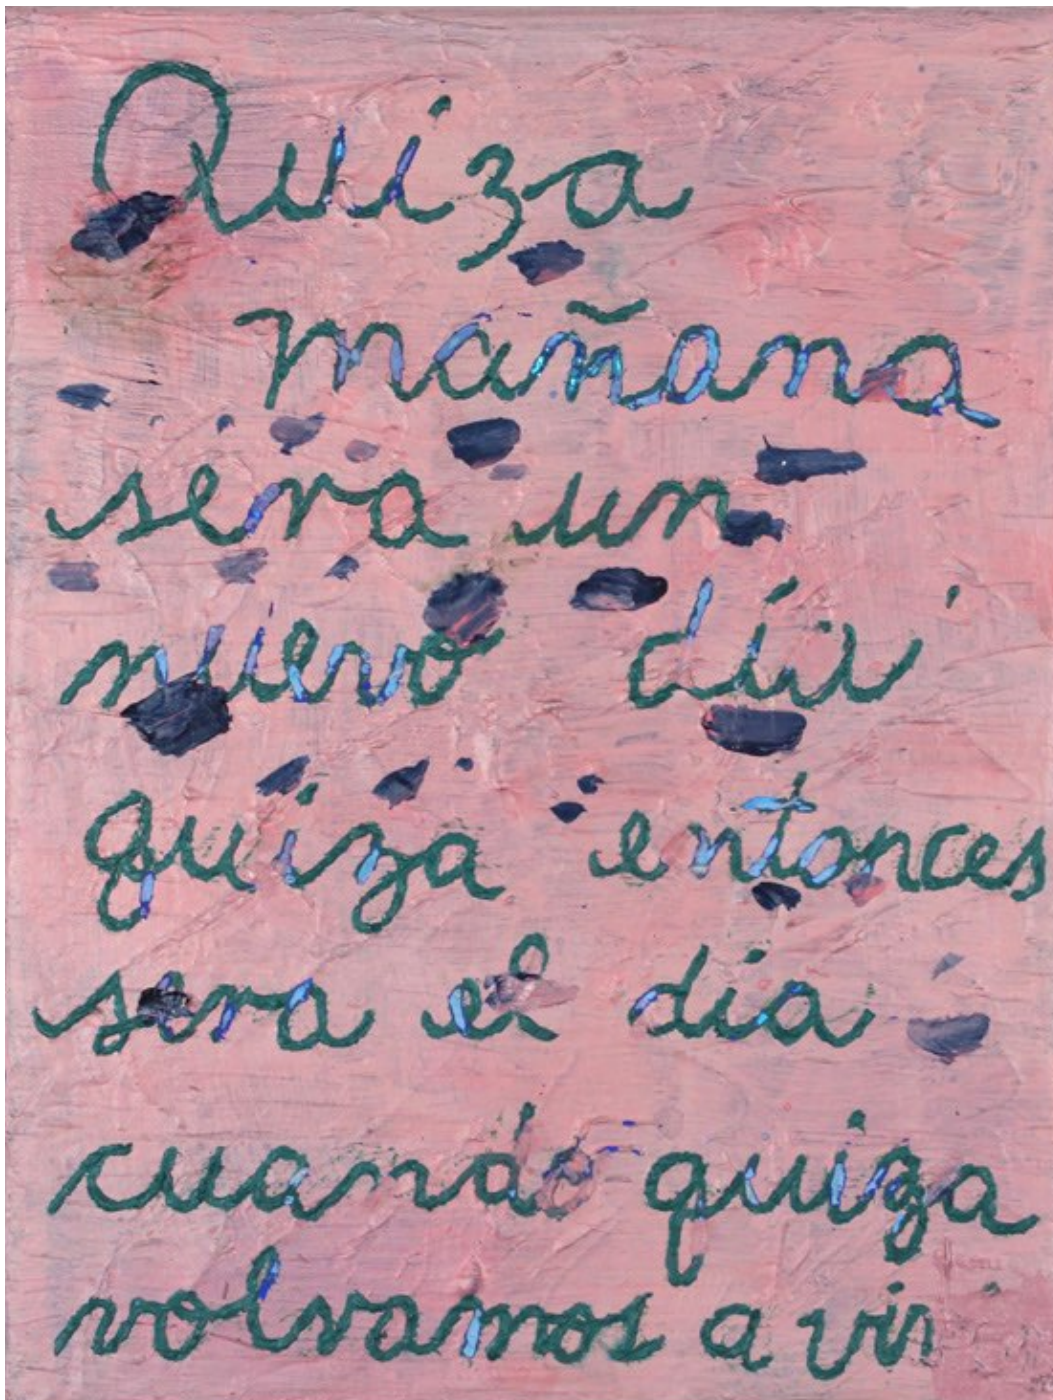 Quiza
mañana
sera un
nuevo día
quiza entonces
sera el dia
cuando quiza
volvamos a